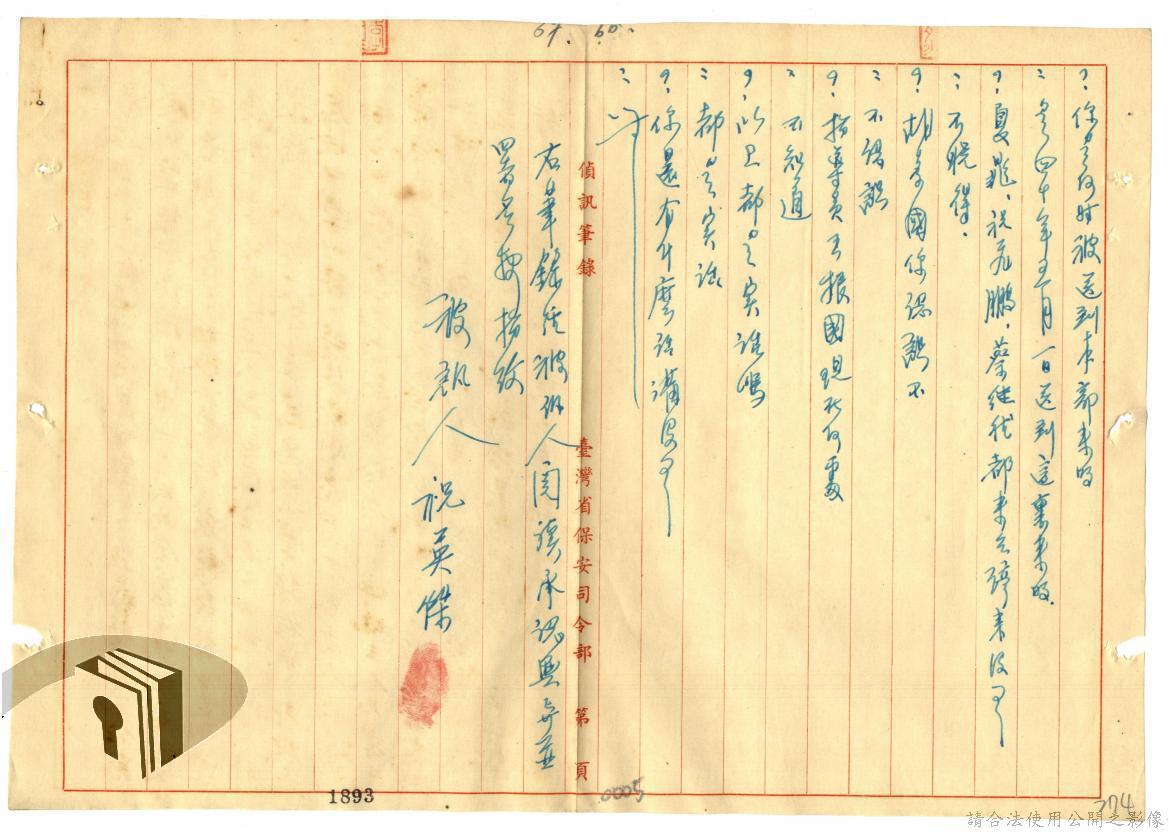 ?:你是何時被送到本部來的
:是四十年五月一日送到這裏來的.
?:夏兆、祝
鵬、蔡
都來
沒有
:不曉得.
?:胡
國你認識不
:不認識
?:指導員王振國現在何處
:不知道
?:以上都是實話嗎
:都是實話
?:你還有什麼話講沒有
:
偵訊筆錄 臺灣省保安司令部 第 頁
右筆錄經被訊人閱讀承認無
並
署名按指紋
被訊人 祝英傑
1893
0005
774
請合法使用公開之影像